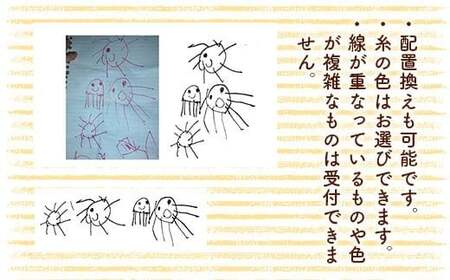 ・配置換えも可能です。
・糸の色はお選びできます。
・線が重なっているものや色
が複雑なものは受付できま
せん。